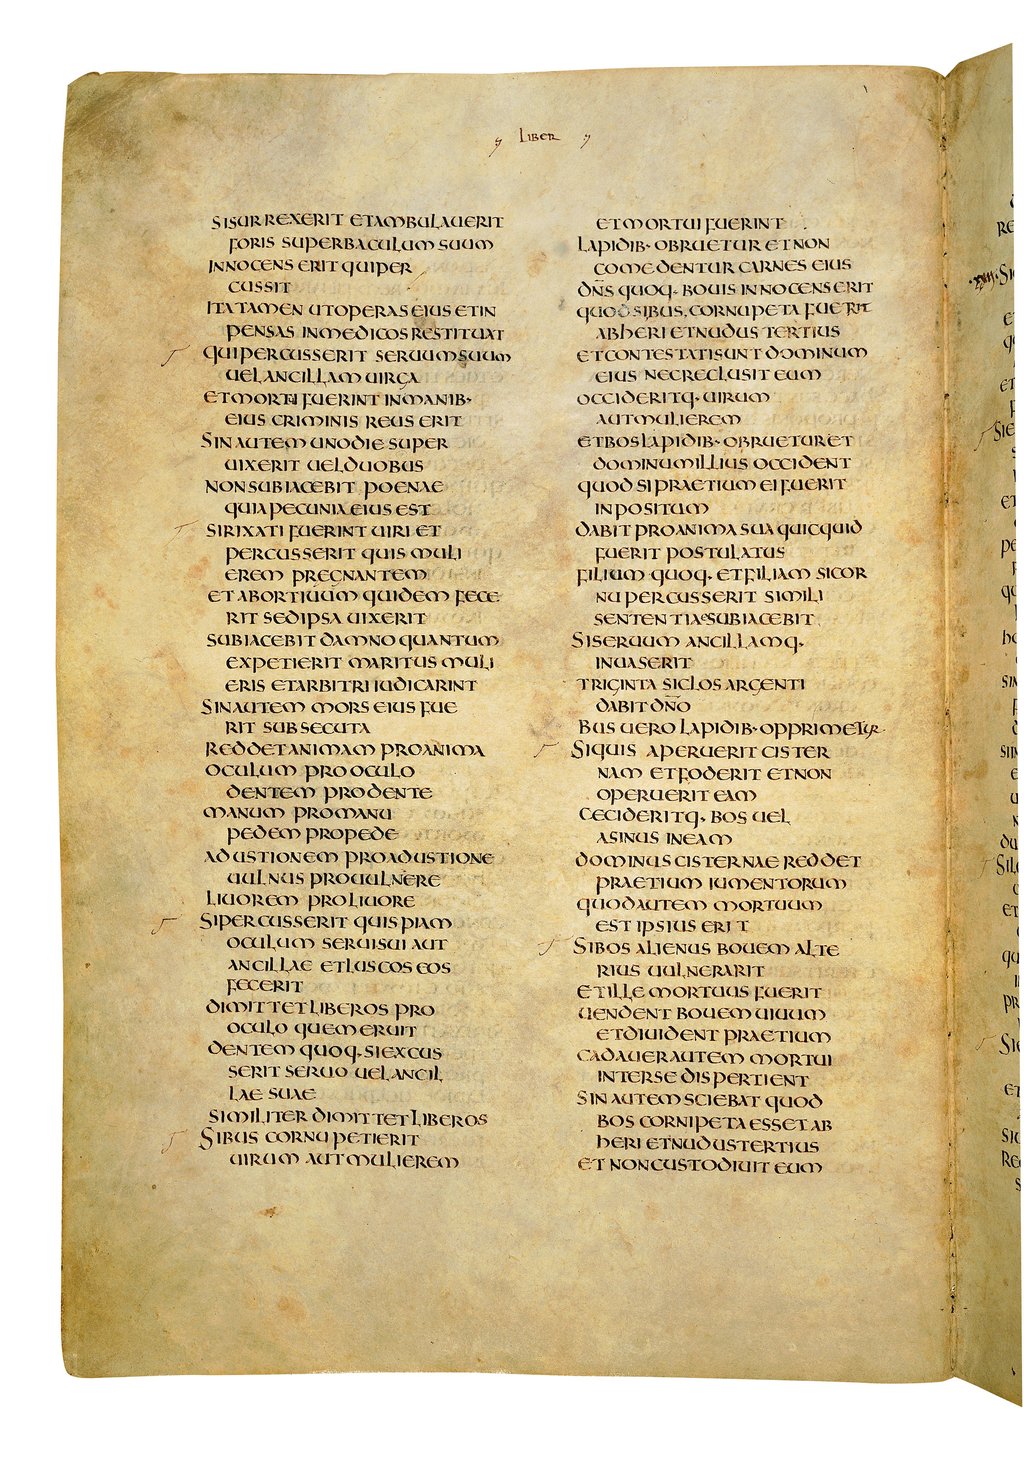 LIBER
SISURREXERIT ETAMBULAUERIT
FORIS SUPERBACULUM SUUM
INNOCENS ERIT QUIPER
CUSSIT
ITATAMEN UTOPERAS EIUS ETIN
PENSAS INMEDICOS RESTITUAT
QUIPERCUSSERIT SERUUMSUUM
UELANCILLAM UIRGA
ETMORTUI FUERINT INMANIB·
EIUS CRIMINIS REUS ERIT
SINAUTEM UNODIE SUPER
UIXERIT UELDUOBUS
NONSUBIACEBIT POENAE
QUIAPECUNIAEIUS EST
SIRIXATI FUERINT UIRI ET
PERCUSSERIT QUIS MULI
EREM PREGNANTEM
ETABORTIUUM QUIDEM FECE
RIT SEDIPSA UIXERIT
SUBIACEBIT DAMNO QUANTUM
EXPETIERIT MARITUS MULI
ERIS ETARBITRI IUDICARINT
SINAUTEM MORS EIUS FUE
RIT SUBSECUTA
REDDETANIMAM PROANIMA
OCULUM PROOCULO
DENTEM PRODENTE
MANUM PROMANU
PEDEM PROPEDE
ADUSTIONEM PROADUSTIONE
UULNUS PROUULNERE
LIUOREM PROLIUORE
SIPERCUSSERIT QUISPIAM
OCULUM SERUISUI AUT
ANCILLAE ETLUSCOS EOS
FECERIT
DIMITTETLIBEROS PRO
OCULO QUEMERUIT
DENTEM QUOQ· SIEXCUS
SERIT SERUO UELANCIL
LAE SUAE
SIMILITER DIMITTETLIBEROS
SIBUS CORNU PETIERIT
UIRUM AUTMULIEREM
ETMORTUI FUERINT
LAPIDIB· OBRUETUR ETNON
COMEDENTUR CARNES EIUS
DN̄S QUOQ· BOUIS INNOCENS ERIT
QUOD SIBUS CORNUPETA FUERIT
ABHERI ETNUDUS TERTIUS
ETCONTESTATISUNT DOMINUM
EIUS NECRECLUSIT EUM
OCCIDERITQ· UIRUM
AUTMULIEREM
ETBOS LAPIDIB· OBRUETURET
DOMINUMILLIUS OCCIDENT
QUOD SIPRAETIUM EI FUERIT
INPOSITUM
DABIT PROANIMA SUA QUICQUID
FUERIT POSTULATUS
FILIUM QUOQ· ETFILIAM SICOR
NU PERCUSSERIT SIMILI
SENTENTIAE SUBIACEBIT
SISERUUM ANCILLAMQ·
INUASERIT
TRIGINTA SICLOS ARGENTI
DABIT DN̄O
BUS UERO LAPIDIB· OPPRIMETUR
SIQUIS APERUERIT CISTER
NAM ETFODERIT ETNON
OPERUERIT EAM
CECIDERITQ· BOS UEL
ASINUS INEAM
DOMINUS CISTERNAE REDDET
PRAETIUM IUMENTORUM
QUODAUTEM MORTUUM
EST IPSIUS ERIT
SIBOS ALIENUS BOUEM ALTE
RIUS UULNERARIT
ETILLE MORTUUS FUERIT
UENDENT BOUEM UIUUM
ETDIUIDENT PRAETIUM
CADAUERAUTEM MORTUI
INTERSE DISPERTIENT
SINAUTEMSCIEBAT QUOD
BOS CORNIPETA ESSETAB
HERI ETNUDUSTERTIUS
ET NONCUSTODIUIT EUM